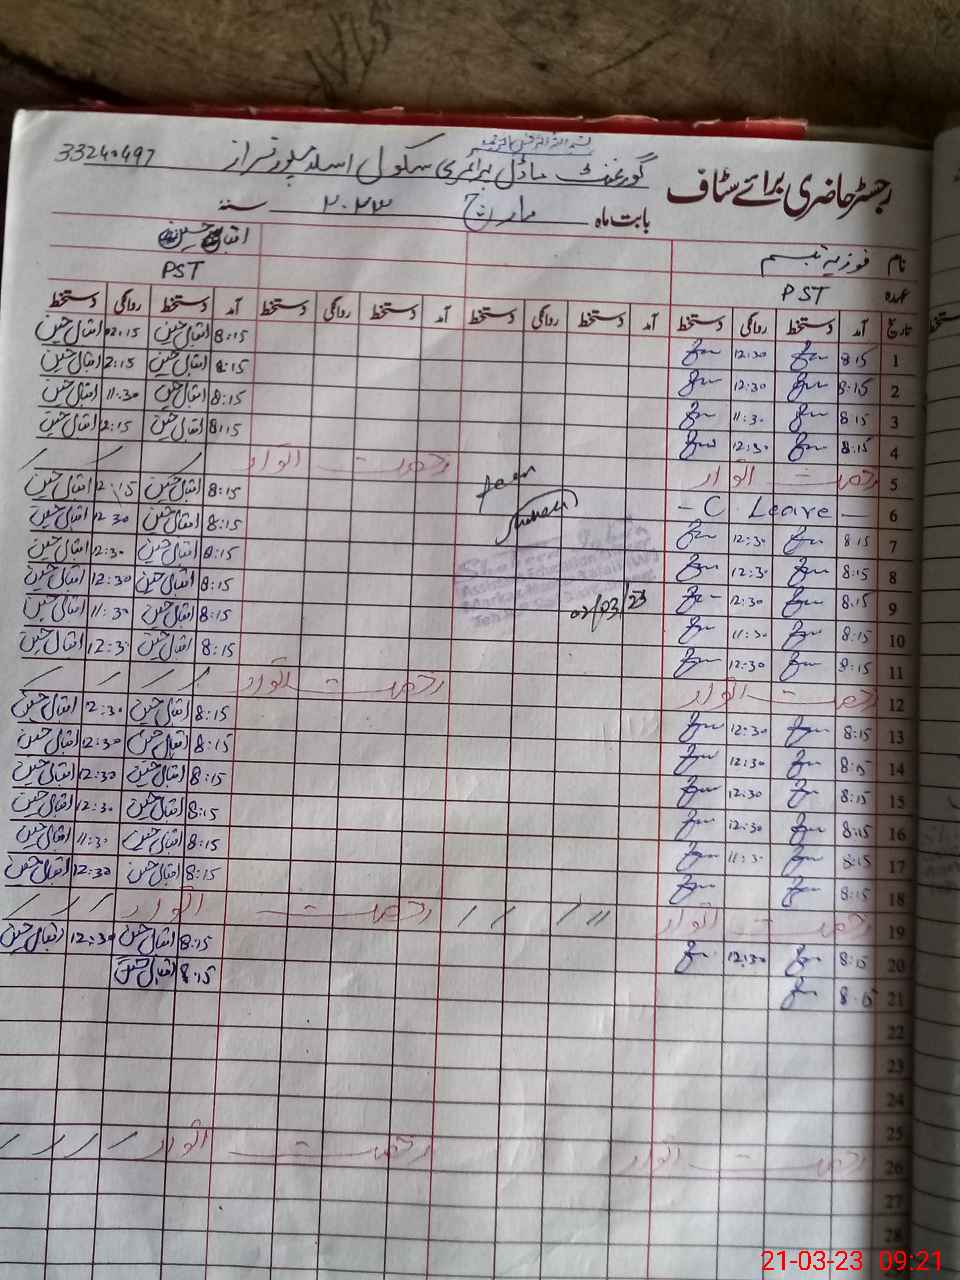 رجسٹر حاضری برائے سٹاف
گورنمنٹ ماڈل پرائمری سکول اسلام پورفراز 33240497
بابت ماہ مارچ ۲۰۲۳ سنہ
نام فوزیہ تبسم اقبال حسین
عہدہ PST PST
تاریخ آمد دستخط روانگی دستخط آمد دستخط روانگی دستخط آمد دستخط روانگی دستخط آمد دستخط روانگی دستخط
1 8:15 12:30 8:15 اقبال حسین 02:15 اقبال حسین
2 8:15 12:30 8:15 اقبال حسین 2:15 اقبال حسین
3 8:15 11:30 8:15 اقبال حسین 11:30 اقبال حسین
4 8:15 12:30 8:15 اقبال حسین 2:15 اقبال حسین
5 رخصت اتوار رخصت اتوار
6 - C. Leave - Seen 8:15 اقبال حسین 2:15 اقبال حسین
7 8:15 12:30 8:15 اقبال حسین 12:30 اقبال حسین
8 8:15 12:30 8:15 اقبال حسین 12:30 اقبال حسین
9 8:15 12:30 02/03/23 8:15 اقبال حسین 12:30 اقبال حسین
10 8:15 11:30 8:15 اقبال حسین 11:30 اقبال حسین
11 8:15 12:30 8:15 اقبال حسین 12:30 اقبال حسین
12 رخصت اتوار رخصت اتوار
13 8:15 12:30 8:15 اقبال حسین 12:30 اقبال حسین
14 8:15 12:30 8:15 اقبال حسین 12:30 اقبال حسین
15 8:15 12:30 8:15 اقبال حسین 12:30 اقبال حسین
16 8:15 12:30 8:15 اقبال حسین 12:30 اقبال حسین
17 8:15 11:30 8:15 اقبال حسین 11:30 اقبال حسین
18 8:15 8:15 اقبال حسین 12:30 اقبال حسین
19 رخصت اتوار رخصت اتوار
20 8:15 12:30 8:15 اقبال حسین 12:30 اقبال حسین
21 8:15 8:15 اقبال حسین
22
23
24
25
26 رخصت اتوار رخصت اتوار
27
28
21-03-23 09:21